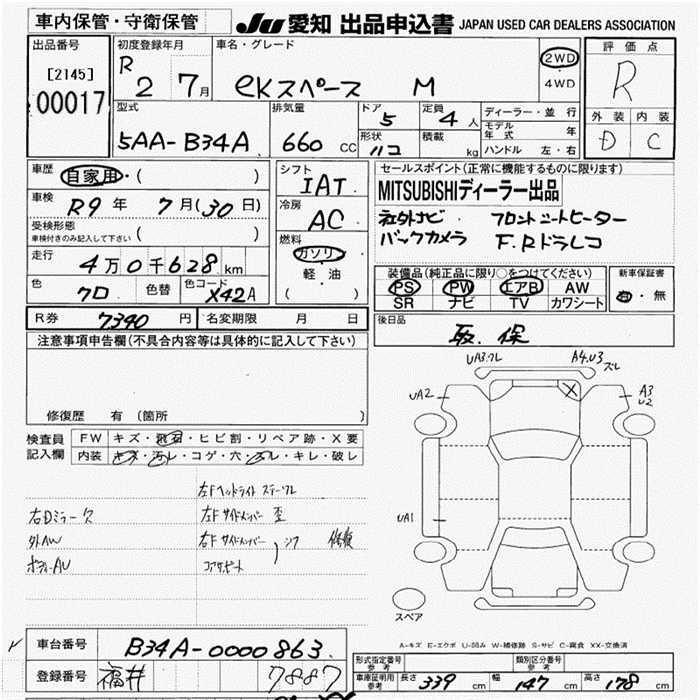 車内保管・守衛保管
JU 愛知 出品申込書 JAPAN USED CAR DEALERS ASSOCIATION
出品番号
[2145]
00017
初度登録年月
R 2 7月
車名・グレード
eKスペース M
2WD
・
4WD
評価点
R
外装 内装
D C
型式
5AA-B34A
排気量
660 cc
ドア
5
定員
4人
形状
ハコ
積載
kg
ディーラー・並行
モデル年式 年
ハンドル 左・右
車歴
自家用・( )
車検
R9年 7月(30日)
受検形態
車検付きのみ記入して下さい ( )
走行
4万0千628km
色
クロ
色替
色コード
X42A
シフト
IAT
冷房
AC
燃料
ガソリン
軽・油
( )
セールスポイント(正常に機能するものに限ります)
MITSUBISHIディーラー出品
社外ナビ フロントシートヒーター
バックカメラ F.Rドラレコ
装備品(純正品に限り○をつけてください)
PS PW エアB AW
SR ナビ TV カワシート
新車保証書
有・無
R券 7390円
名変期限 月 日
後日品
取、保
注意事項申告欄(不具合内容等は具体的に記入して下さい)
修復歴 有 (箇所 )
検査員
記入欄
FW キズ・飛石・ヒビ割・リペア跡・X要
内装 キズ・汚レ・コゲ・穴・スレ・キレ・破レ
左Fヘッドライト ステークレ
右Dミラー欠 左Fサイドメンバー 歪
外AW 右Fサイドメンバー
ボディーAU コアサポート
UA3 A4.U3 ズレ
UA2
A3
U2
X
UA1
スペア
A-キズ E-エクボ U-凹み W-補修跡 S-サビ C-腐食 XX-交換済
車台番号 B34A-0000863
登録番号 福井 7887
形式指定番号 参考
類別区分番号 参考
車庫証明用 参考 長さ 339 cm 幅 147 cm 高さ 178 cm